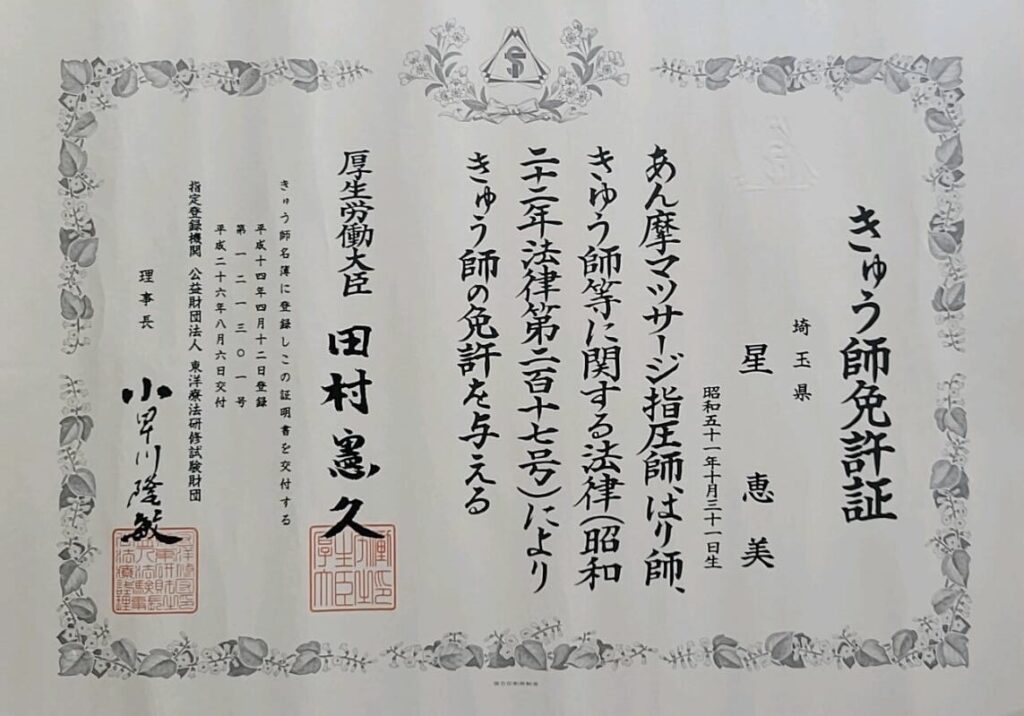 きゅう師免許証
埼玉県
星 恵美
昭和五十一年十月三十一日生
あん摩マツサージ指圧師、はり師、
きゆう師等に関する法律(昭和
二十二年法律第二百十七号)により
きゅう師の免許を与える
厚生労働大臣 田村憲久
きゅう師名簿に登録しこの証明書を交付する
平成十四年四月十二日登録
第一二一三〇一号
平成二十六年八月六日交付
指定登録機関 公益財団法人 東洋療法研修試験財団
理事長 小早川隆敏